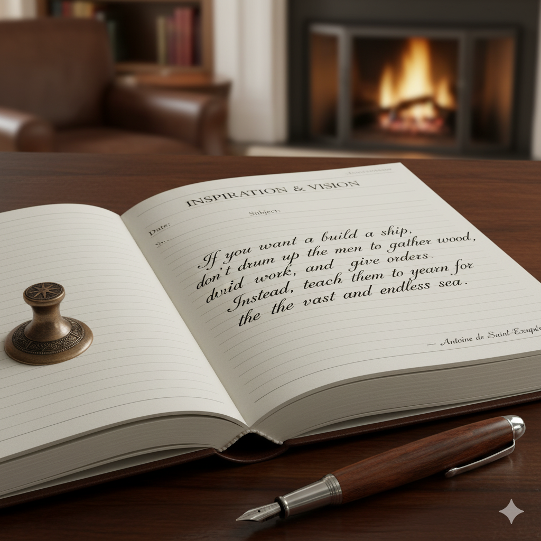 INSPIRATION & VISION
Date:
Subject:
If you want a build a ship,
don't drum up the men to gather wood,
dvid work, and give orders.
Instead, teach them to yearn for
the the vast and endless sea.
— Antoine de Saint-Exupé